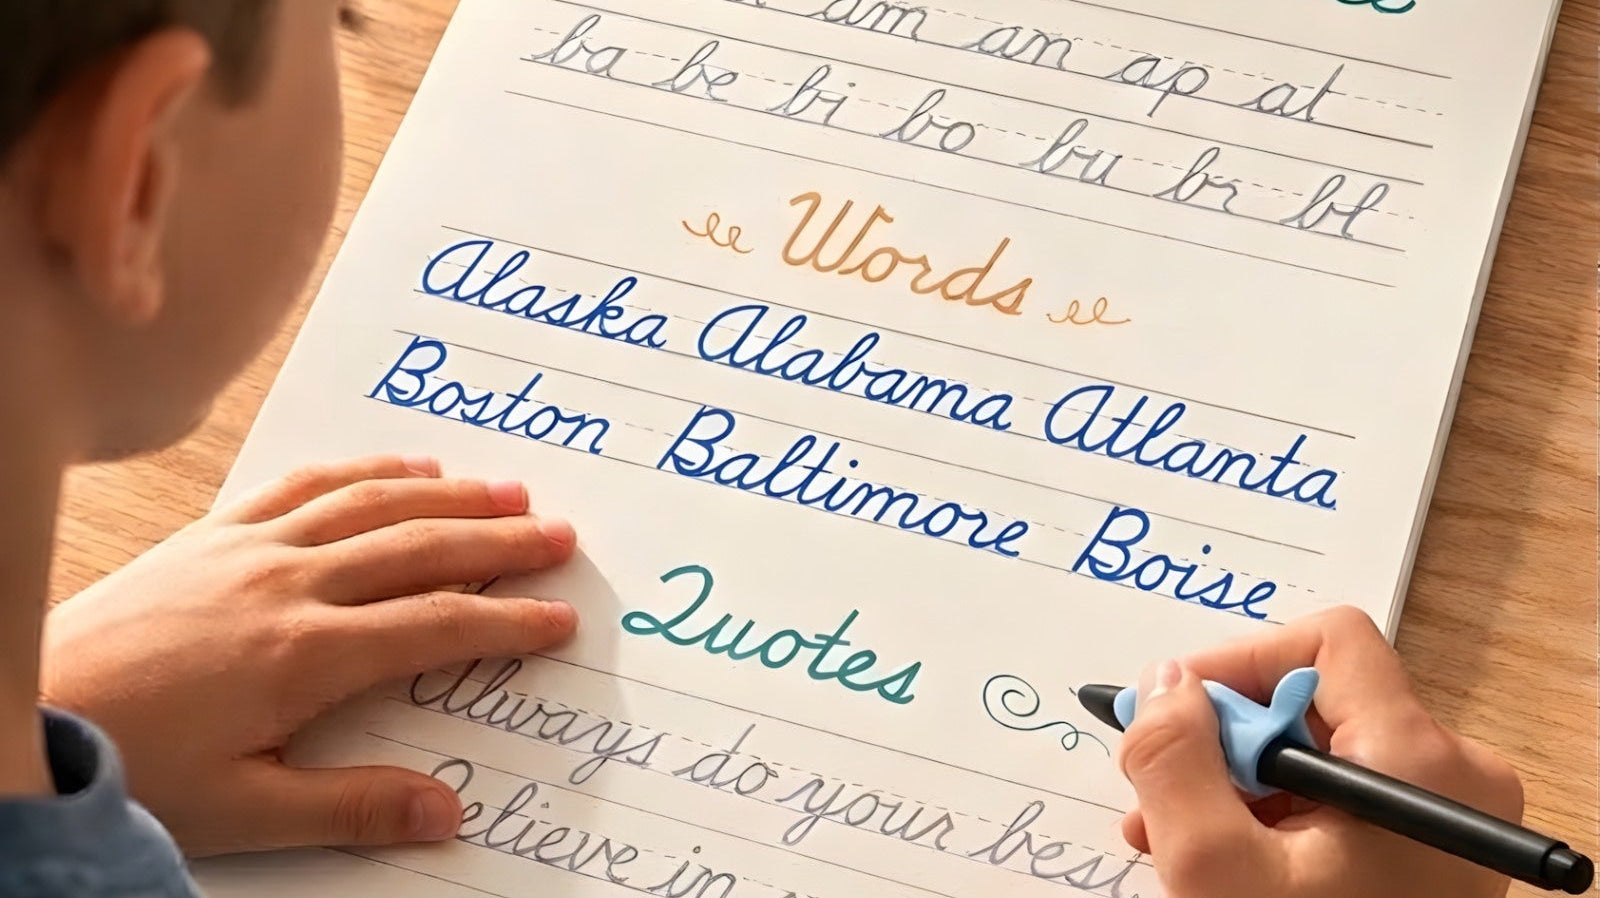 am an ap at
ba be bi bo bu br bl
Words
Alaska Alabama Atlanta
Boston Baltimore Boise
Quotes
Always do your best
Believe in